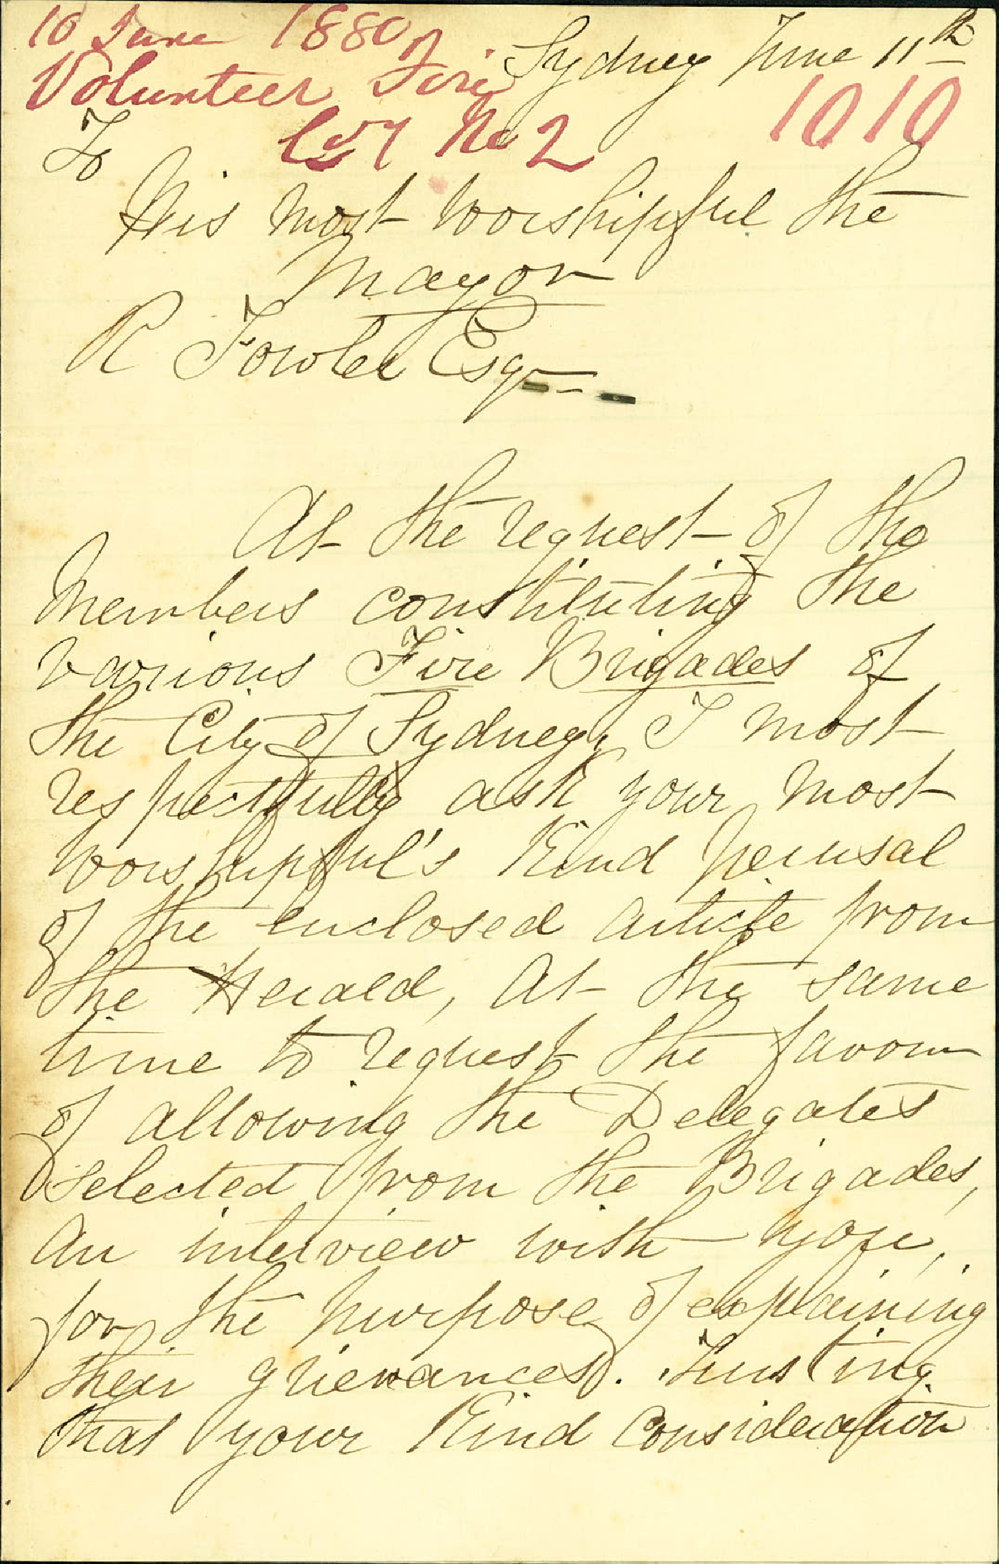 10 June 1880
Sydney June 11th
Volunteer Fire
1010
Coy No 2
To
His most worshipful the
Mayor
R Fowler Esq
At the request of the
Members constituting the
various Fire Brigades of
the City of Sydney, I most
respectfully ask your most
worshipful's Kind perusal
of the enclosed article from
the Herald, at the same
time to request the favour
of allowing the Delegates
selected from the Brigades,
an interview with you,
for the purpose of explaining
their grievances. Trusting
that your Kind Consideration